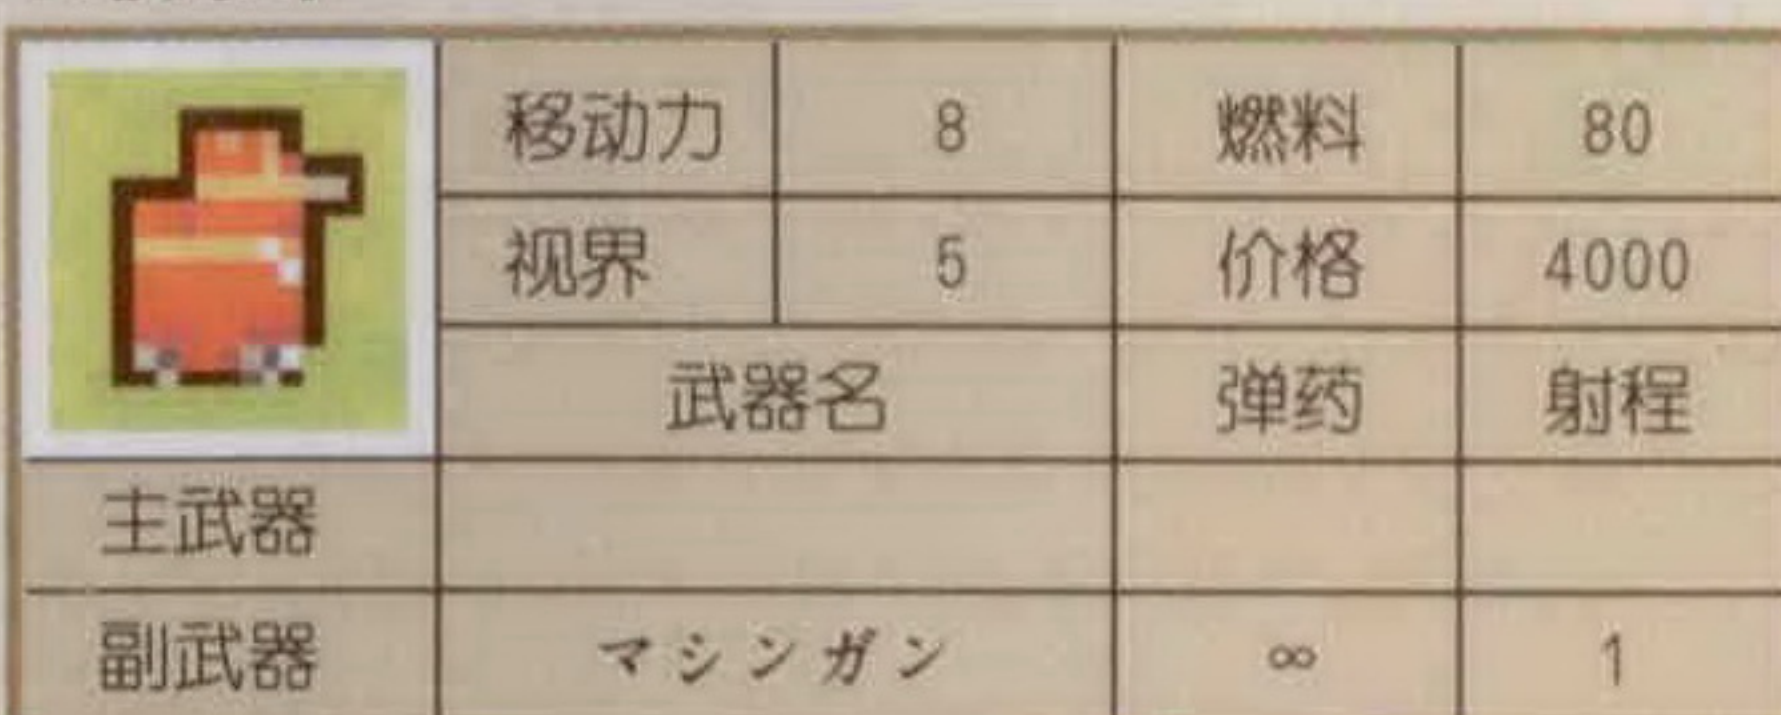 移动力 8 燃料 80
视界 5 价格 4000
武器名 弹药 射程
主武器
副武器 マシンガン ∞ 1